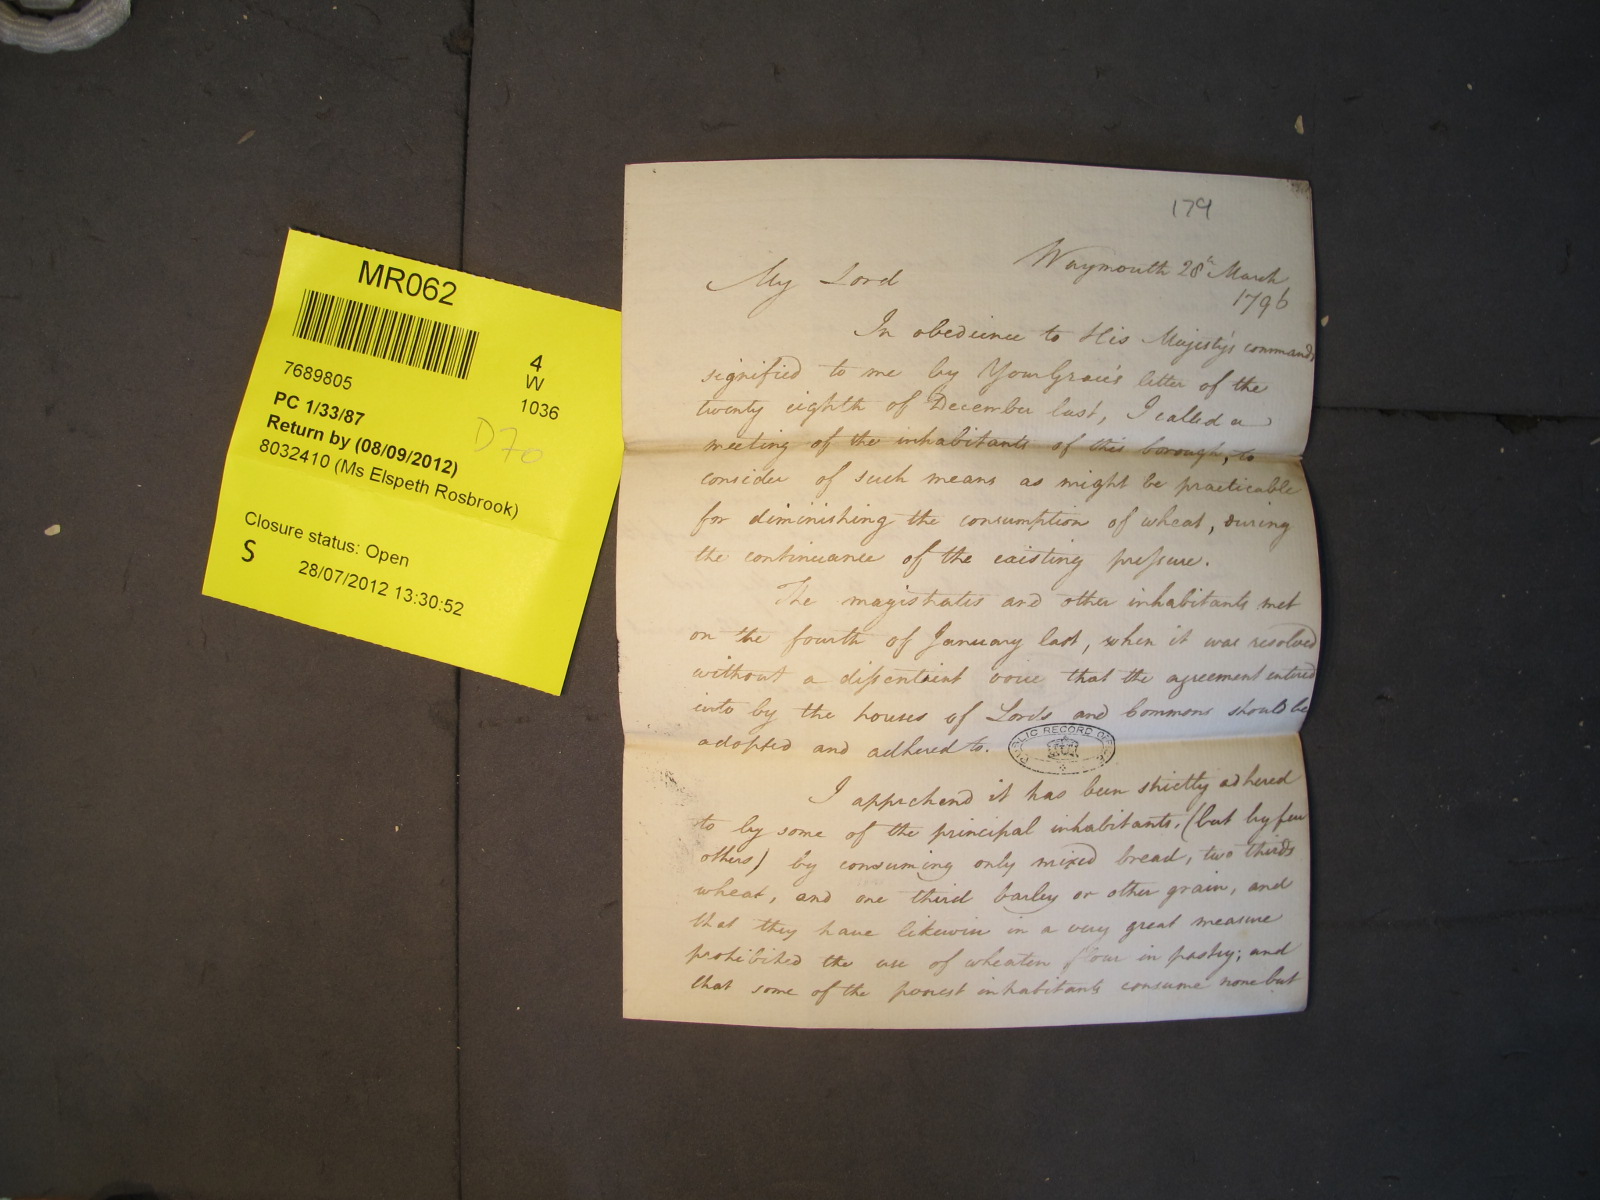 MR062
4
W
1036
7689805
PC 1/33/87
Return by (08/09/2012)
D70
8032410 (Ms Elspeth Rosbrook)
Closure status: Open
S
28/07/2012 13:30:52
179
Waymouth 28th March
1796
My Lord
In obedience to His Majesty's commands
signified to me by Your Grace's letter of the
twenty eighth of December last, I called a
meeting of the inhabitants of this borough, to
consider of such means as might be practicable
for diminishing the consumption of wheat, during
the continuance of the existing pressure.
The magistrates and other inhabitants met
on the fourth of January last, when it was resolved
without a dissentaint voice that the agreement entered
into by the houses of Lords and Commons should be
adopted and adhered to.
PUBLIC RECORD OFFICE
I apprehend it has been strictly adhered
to by some of the principal inhabitants, (but by few
others) by consuming only mixed bread, two thirds
wheat, and one third barley or other grain, and
that they have likewise in a very great measure
prohibited the use of wheaten flour in pastry; and
that some of the poorest inhabitants consume none but